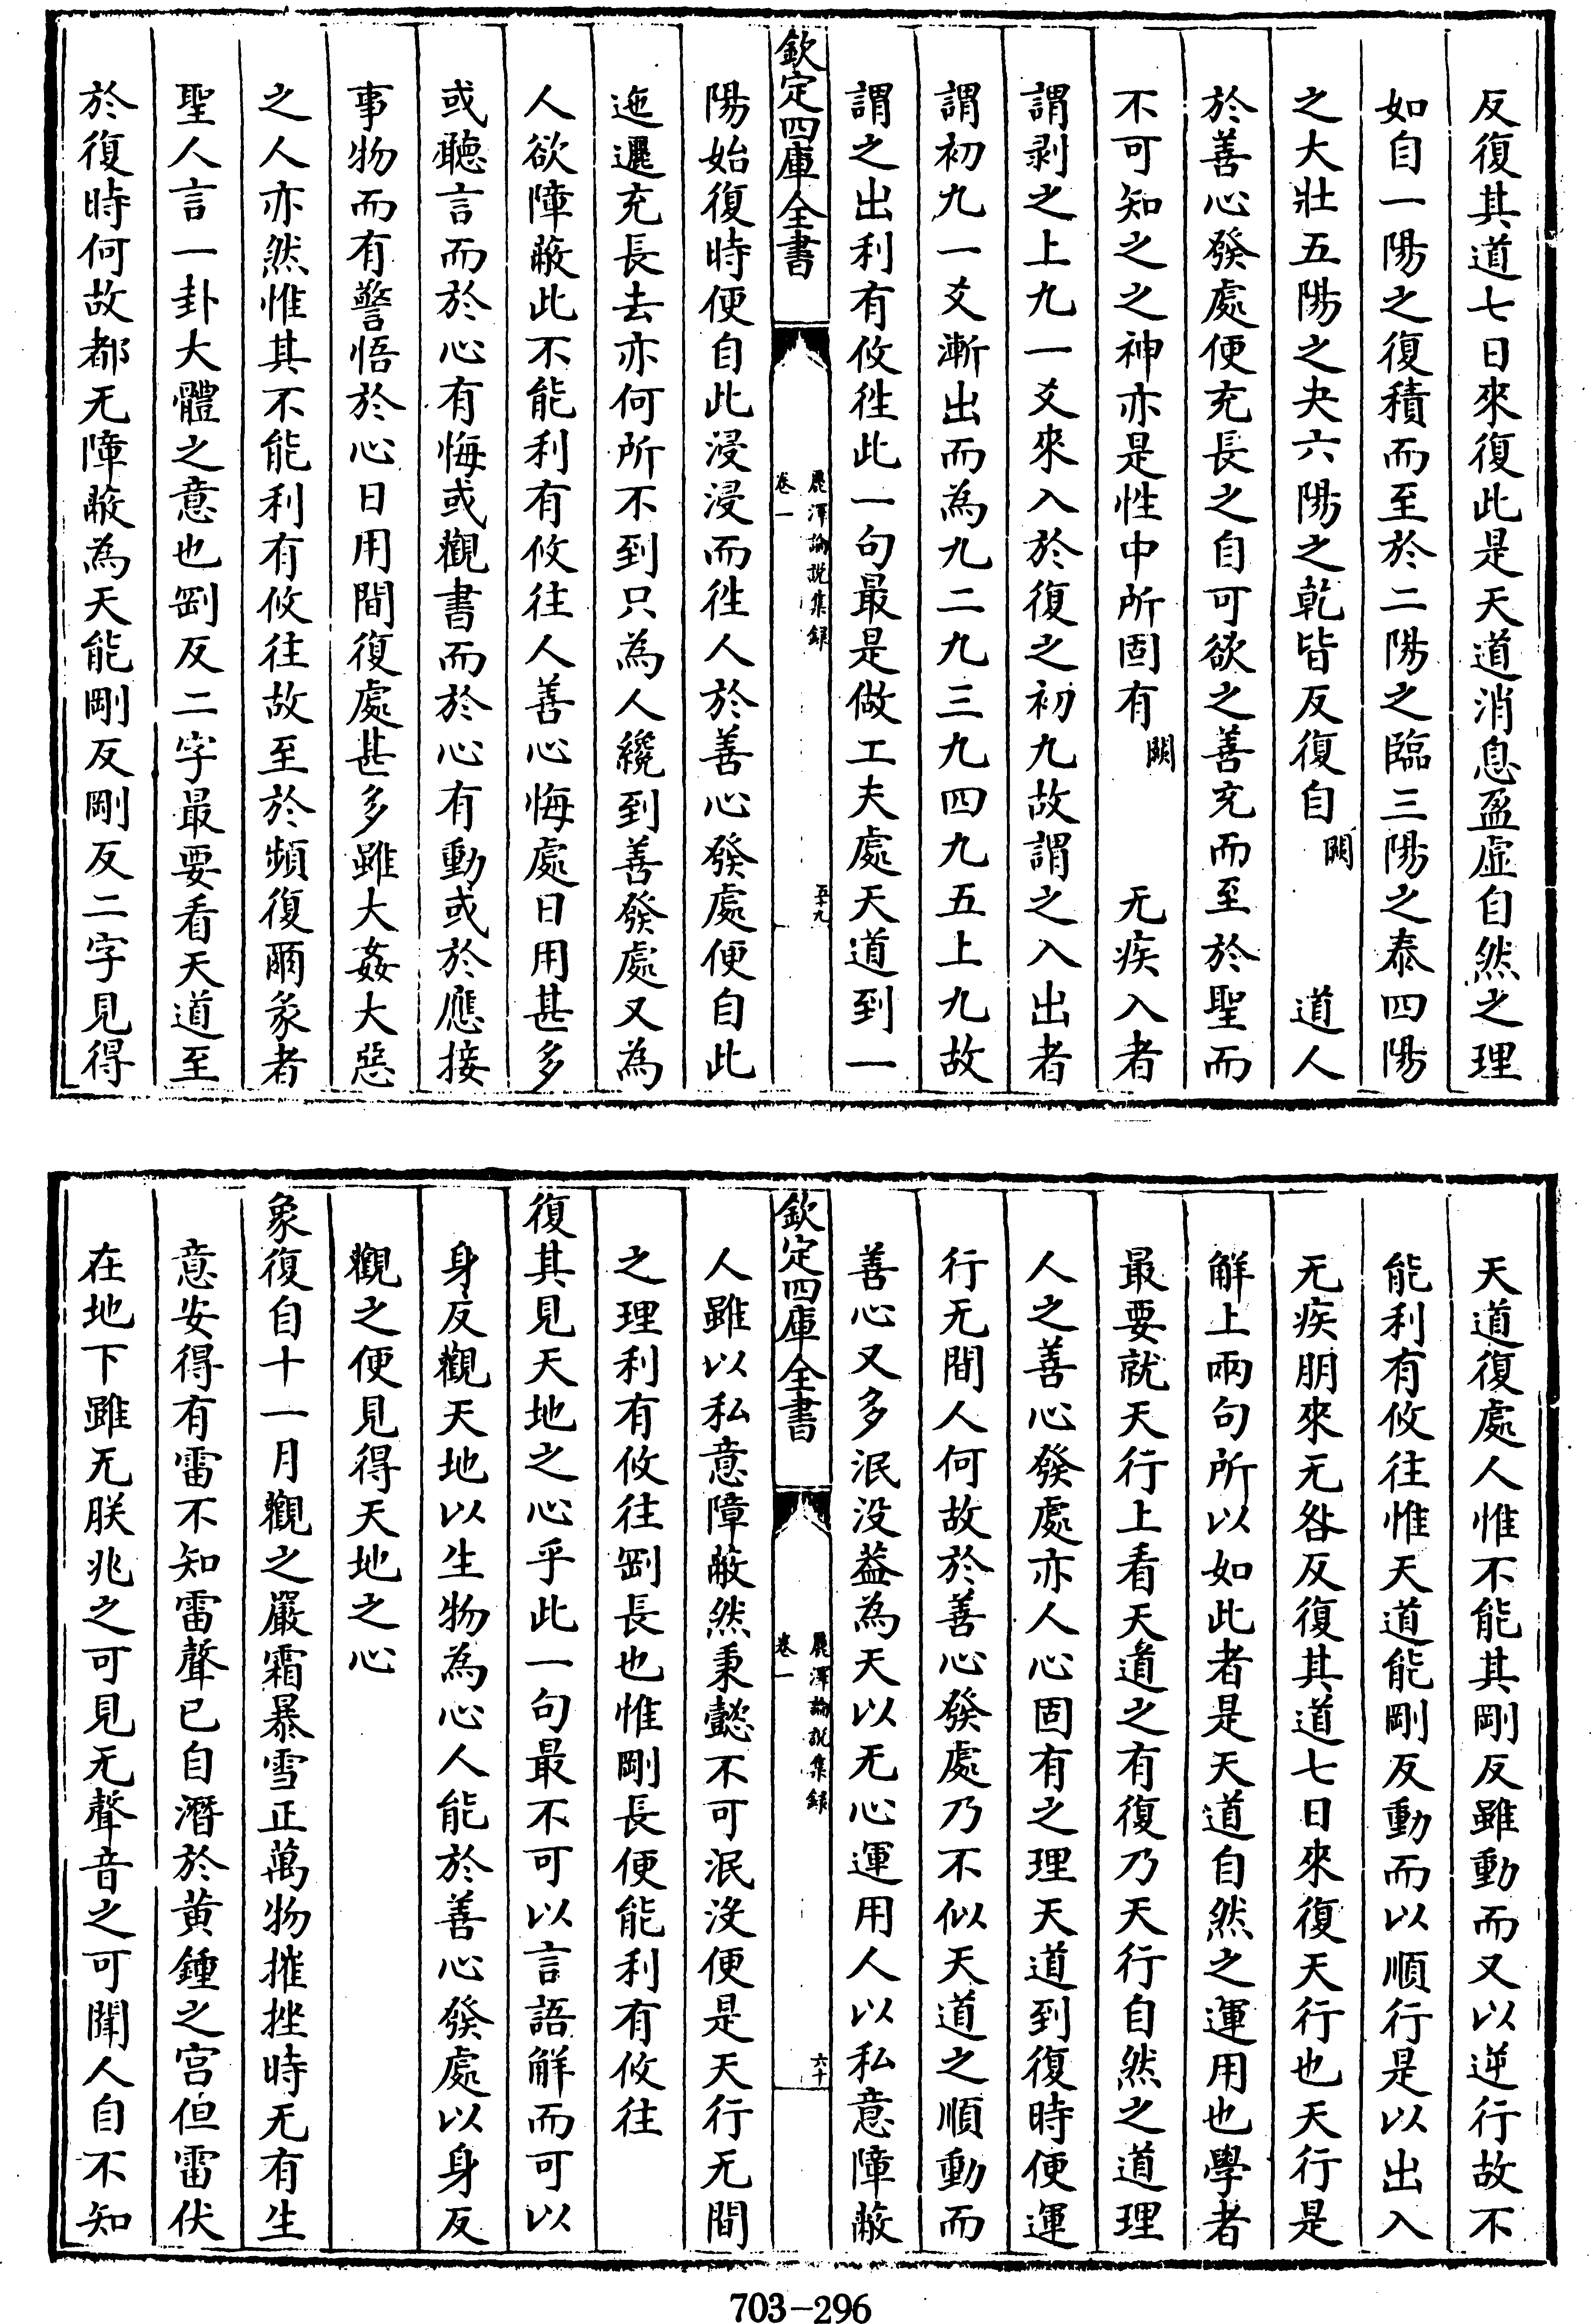 反復其道七日來復此是天道消息盈虛自然之理
如自一陽之復積而至於二陽之臨三陽之泰四陽
之大壯五陽之夬六陽之乾皆反復自闕道人
於善心發處便充長之自可欲之善充而至於聖而
不可知之之神亦是性中所固有闕无疾入者
謂剥之上九一爻來入於復之初九故謂之入出者
謂初九一爻漸出而為九二九三九四九五上九故
謂之出利有攸徃此一句最是做工夫處天道到一
欽定四庫全書
麗澤論説集録
卷一
五十九
陽始復時便自此浸浸而徃人於善心發處便自此
迤邐充長去亦何所不到只為人纔到善發處又為
人欲障蔽此不能利有攸往人善心悔處日用甚多
或聽言而於心有悔或觀書而於心有動或於應接
事物而有警悟於心日用間復處甚多雖大姦大惡
之人亦然惟其不能利有攸往故至於頻復爾彖者
聖人言一卦大體之意也剛反二字最要看天道至
於復時何故都无障蔽為天能剛反剛反二字見得
天道復處人惟不能其剛反雖動而又以逆行故不
能利有攸往惟天道能剛反動而以順行是以出入
无疾朋來无咎反復其道七日來復天行也天行是
解上兩句所以如此者是天道自然之運用也學者
最要就天行上看天道之有復乃天行自然之道理
人之善心發處亦人心固有之理天道到復時便運
行无間人何故於善心發處乃不似天道之順動而
善心又多泯没葢為天以无心運用人以私意障蔽
欽定四庫全書
麗澤論説集録
卷一
六十
人雖以私意障蔽然秉懿不可泯没便是天行无間
之理利有攸往剛長也惟剛長便能利有攸往
復其見天地之心乎此一句最不可以言語解而可以
身反觀天地以生物為心人能於善心發處以身反
觀之便見得天地之心
象復自十一月觀之嚴霜暴雪正萬物摧挫時无有生
意安得有雷不知雷聲已自潛於黄鍾之宫但雷伏
在地下雖无朕兆之可見无聲音之可聞人自不知
703-296